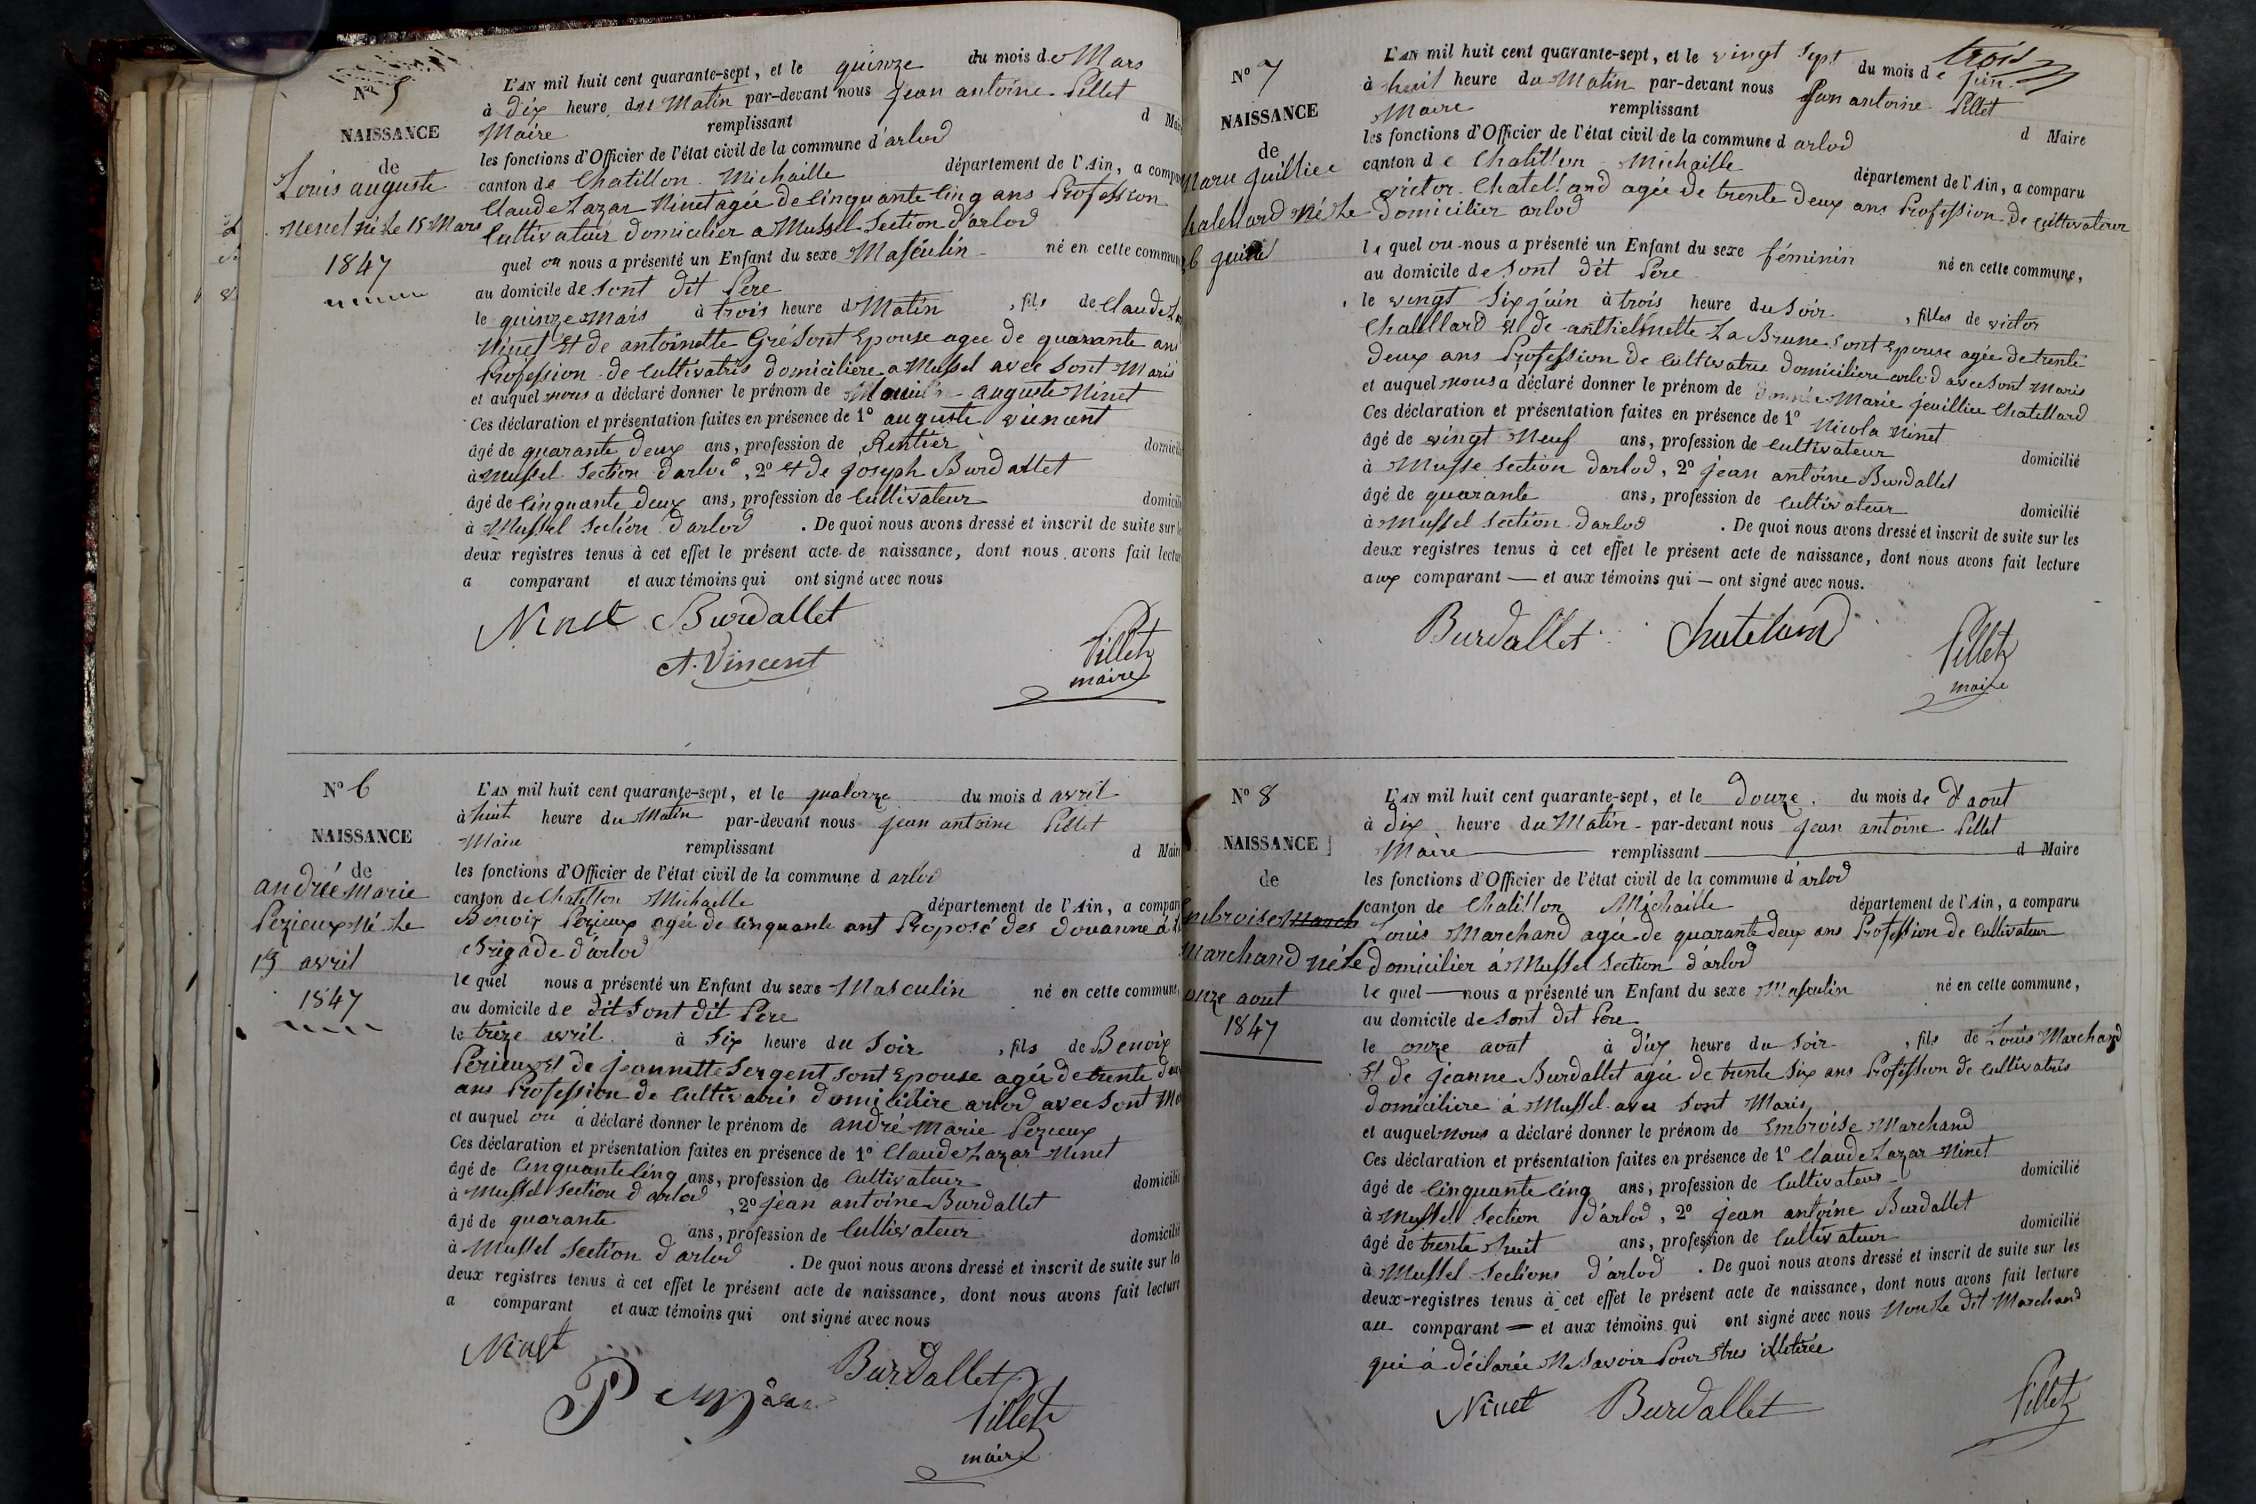 N° 5
NAISSANCE
de
Louis auguste
Ninet né Le 15 Mars
1847
L'AN mil huit cent quarante-sept, et le quinze du mois de Mars
à dix heure du Matin par-devant nous jean antoine Pillet
Maire remplissant d Mai
les fonctions d'Officier de l'état civil de la commune d'arlod
canton de Chatillon Michaille département de l'Ain, a compa
Claude Lazar Ninet agée de Cinquante Cinq ans Profession
Cultivateur domicilier a Mussel Section d'arlod
quel ou nous a présenté un Enfant du sexe Masculin né en cette commun
au domicile de Sont dit Père
le quinze Mars à trois heure d Matin , fils de Claude La
Ninet Et de antoinette Gré Sont Epouse agee de quarante an
Profession de Cultivatris domiciliere a Mussel avec Sont Maris
et auquel nous a déclaré donner le prénom de auguste Ninet
Ces déclaration et présentation faites en présence de 1° auguste vincent
âgé de quarante deux ans, profession de Rentier domicili
à Mussel Section d'arlod , 2° et de joseph Burdallet
âgé de Cinquante deux ans, profession de Cultivateur domicili
à Mussel Section d'arlod . De quoi nous avons dressé et inscrit de suite sur le
deux registres tenus à cet effet le présent acte de naissance, dont nous avons fait lectur
a comparant et aux témoins qui ont signé avec nous
Ninet Burdallet
A. Vincent
Pillet
maire
N° 6
NAISSANCE
de
andrée Marie
Perieux Né Le
13 avril
1847
L'AN mil huit cent quarante-sept, et le quatorze du mois d avril
à huit heure du Matin par-devant nous jean antoine Pillet
Maire remplissant d Mair
les fonctions d'Officier de l'état civil de la commune d arlod
canton de Chatillon Michaille département de l'Ain, a compar
Benoix Perieux agée de Cinquante ant Préposé des Douanne á
Brigade d'arlod
le quel nous a présenté un Enfant du sexe Masculin né en cette commune,
au domicile de dit Sont dit Père
le trèze avril à Six heure du Soir , fils de Benoix
Perieux Et de jeannette Sergent Sont Epouse agée de trente d
ans Profession de Cultivatris domiciliere arlod avec Sont Ma
et auquel ou a déclaré donner le prénom de andré Marie Perieux
Ces déclaration et présentation faites en présence de 1° Claude Lazar Ninet
âgé de Cinquante Cinq ans, profession de Cultivateur domicilié
à Mussel Section d'arlod , 2° jean antoine Burdallet
âgé de quarante ans, profession de Cultivateur domicilié
à Mussel Section d'arlod . De quoi nous avons dressé et inscrit de suite sur les
deux registres tenus à cet effet le présent acte de naissance, dont nous avons fait lecture
a comparant et aux témoins qui ont signé avec nous
Ninet
Burdallet
Pillet
maire
N° 7
NAISSANCE
de
Marie juilliee
hatellard Né Le
6 juin
trois
L'AN mil huit cent quarante-sept, et le vingt Sept du mois de juin
à huit heure du Matin par-devant nous jean antoine Pillet
Maire remplissant d Maire
les fonctions d'Officier de l'état civil de la commune d arlod
canton de Chatillon Michaille département de l'Ain, a comparu
victor Chatellard agée de trente deux ans Profession de Cultivateur
domicilier arlod
le quel ou nous a présenté un Enfant du sexe féminin né en cette commune,
au domicile de Sont dit Père
le vingt Six juin à trois heure du Soir , filles de victor
Chatellard Et de anthelmette La Brune Sont Epouse agée de trente
deux ans Profession de Cultivatris domiciliere arlod avec Sont Maris
et auquel nous a déclaré donner le prénom de Marie jeuilliee Chatellard
Ces déclaration et présentation faites en présence de 1° Nicola Ninet
âgé de vingt Neuf ans, profession de Cultivateur domicilié
à Musse Section d'arlod , 2° jean antoine Burdallet
âgé de quarante ans, profession de Cultivateur domicilié
à Mussel Section d'arlod . De quoi nous avons dressé et inscrit de suite sur les
deux registres tenus à cet effet le présent acte de naissance, dont nous avons fait lecture
aux comparant — et aux témoins qui — ont signé avec nous.
Burdallet Chatelard
Pillet
maire
N° 8
NAISSANCE
de
Embroise March
Marchand né Le
onze aout
1847
L'AN mil huit cent quarante-sept, et le Douze du mois de d'aout
à Dix heure du Matin par-devant nous jean antoine Pillet
Maire remplissant d Maire
les fonctions d'Officier de l'état civil de la commune d'arlod
canton de Chatillon Michaille département de l'Ain, a comparu
Louis Marchand agée de quarante deux ans Profession de Cultivateur
domicilier á Mussel Section d'arlod
le quel — nous a présenté un Enfant du sexe Masculin né en cette commune,
au domicile de Sont dit Père
le onze aout à dix heure du Soir , fils de Louis Marchand
Et de jeanne Burdallet agée de trente Six ans Profession de Cultivatris
domiciliere á Mussel avec Sont Maris
et auquel nous a déclaré donner le prénom de Embroise Marchand
Ces déclaration et présentation faites en présence de 1° Claude Lazar Ninet
âgé de Cinquante Cinq ans, profession de Cultivateur domicilié
à Mussel Section d'arlod , 2° jean antoine Burdallet
âgé de trente huit ans, profession de Cultivateur domicilié
à Mussel Sections d'arlod . De quoi nous avons dressé et inscrit de suite sur les
deux registres tenus à cet effet le présent acte de naissance, dont nous avons fait lecture
au comparant — et aux témoins qui ont signé avec nous Non Le dit Marchand
qui á déclarée Ne Savoir Pour Etres illetirée
Ninet Burdallet Pillet